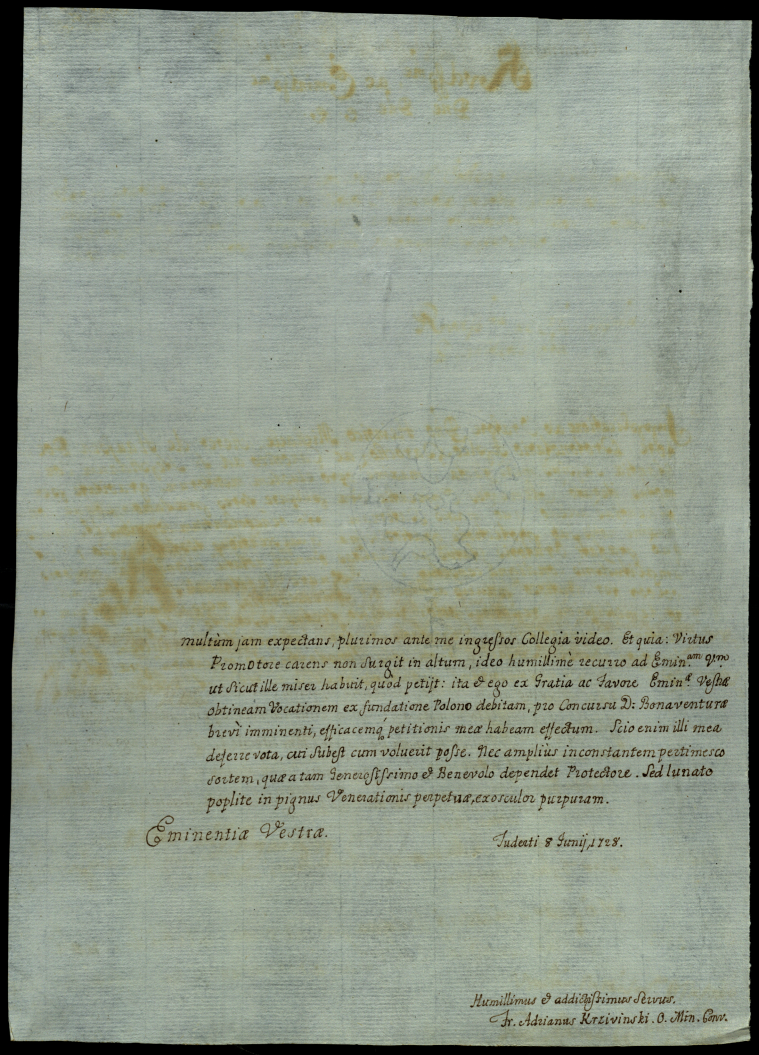 multùm jam expectans, plurimos ante me ingressos Collegia video. Et quia: Virtus
Promotore carens non surgit in altum, ideo humillimè recurro ad Emin.am Vrā
ut sicut ille miser habuit, quod petijt: ita & ego ex Gratia ac Favore Emin.æ Vestræ
obtineam Vocationem ex fundatione Polono debitam, pro Concursu D: Bonaventuræ
brevì imminenti, efficacemq; petitionis meæ habeam effectum. Scio enim illi mea
deferre vota, cui subest cum voluerit posse. Nec ampliùs inconstantem pertimesco
sortem, quæ a tam Generosissimo & Benevolo dependet Protectore. Sed lunato
poplite in pignus Venerationis perpetuæ, exosculor purpuram.
Eminentiæ Vestræ.
Tuderti 8 Junij, 1728.
Humillimus & addictissimus Servus.
Fr. Adrianus Krzivinski. O. Min. Conv.